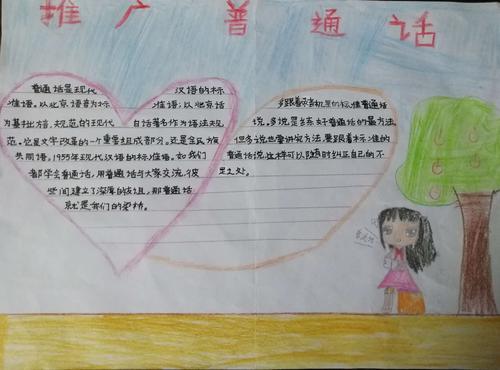 推广普通话
普通话是现代 汉语的标
准语。以北京语音为标 准语,以北京话
为基础方,规范的现代 白话著名作为语法规
范。它是文字改革的一个重要组成部分。还是全民族
共同语。1955年现代汉语的标准语。如我们
都学会普通话,用普通话与大家交流,彼
此间建立了深厚的友谊,那普通话
就是我们的
多跟着收音机里的标准普通话
说。多说,是练好普通话的最方法,
但多说也要讲究方法,要跟着标准的
普通话说,这样可以随时纠正自己的不
足之处。